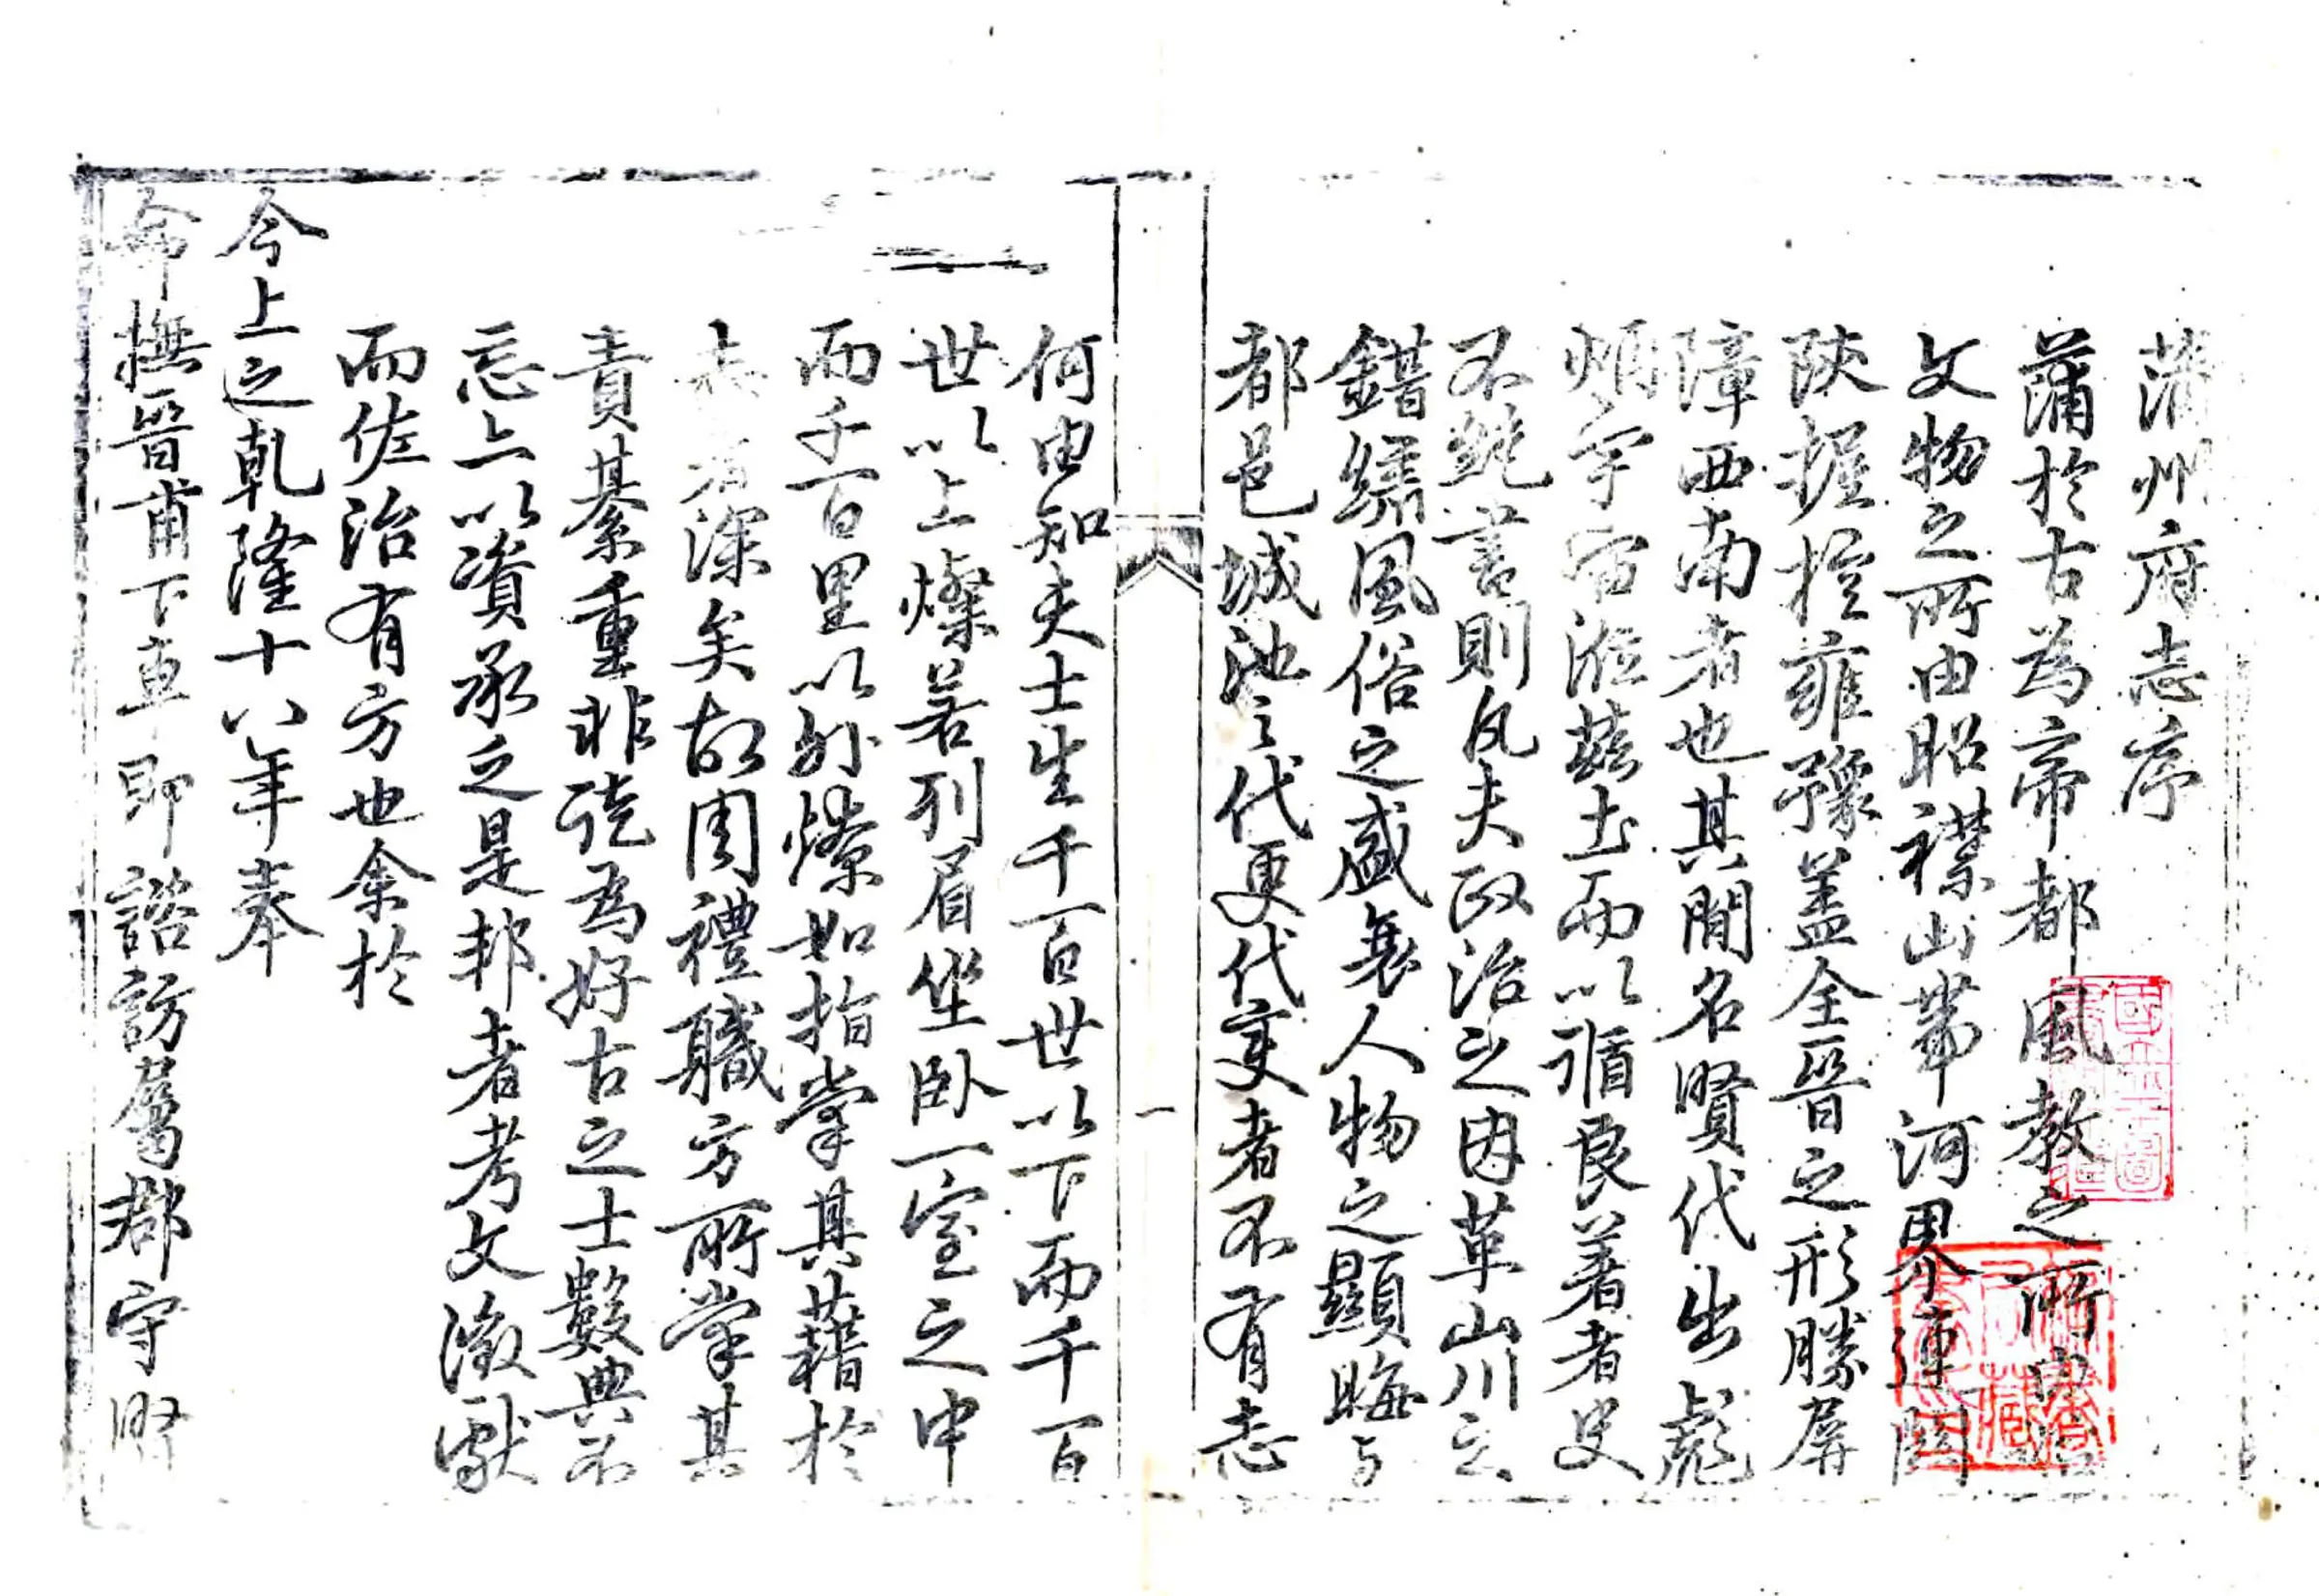 蒲州府志序
蒲於古為帝都風教之所
文物之所由昭襟山帶河界連關
陜握控雍豫蓋全晉之形勝屏
障西南者也其間名賢代出彪
炳宇宙涖茲土而以循良著者史
不絕書則凡夫政治之因革山川之
錯繡風俗之盛衰人物之顯晦與
都邑城池之代更代變者不有志
一
何由知夫士生千百世以下而千百
世以上燦若列眉坐臥一室之中
而千百里以外燎如指掌其藉於
志者深矣故周禮職方所掌其
責綦重非徒為好古之士數典不
忘亦以資承乏是邦者考文徵獻
而佐治有方也余於
今上之乾隆十八年奉
命撫晉甫下車即諮訪屬郡守賢